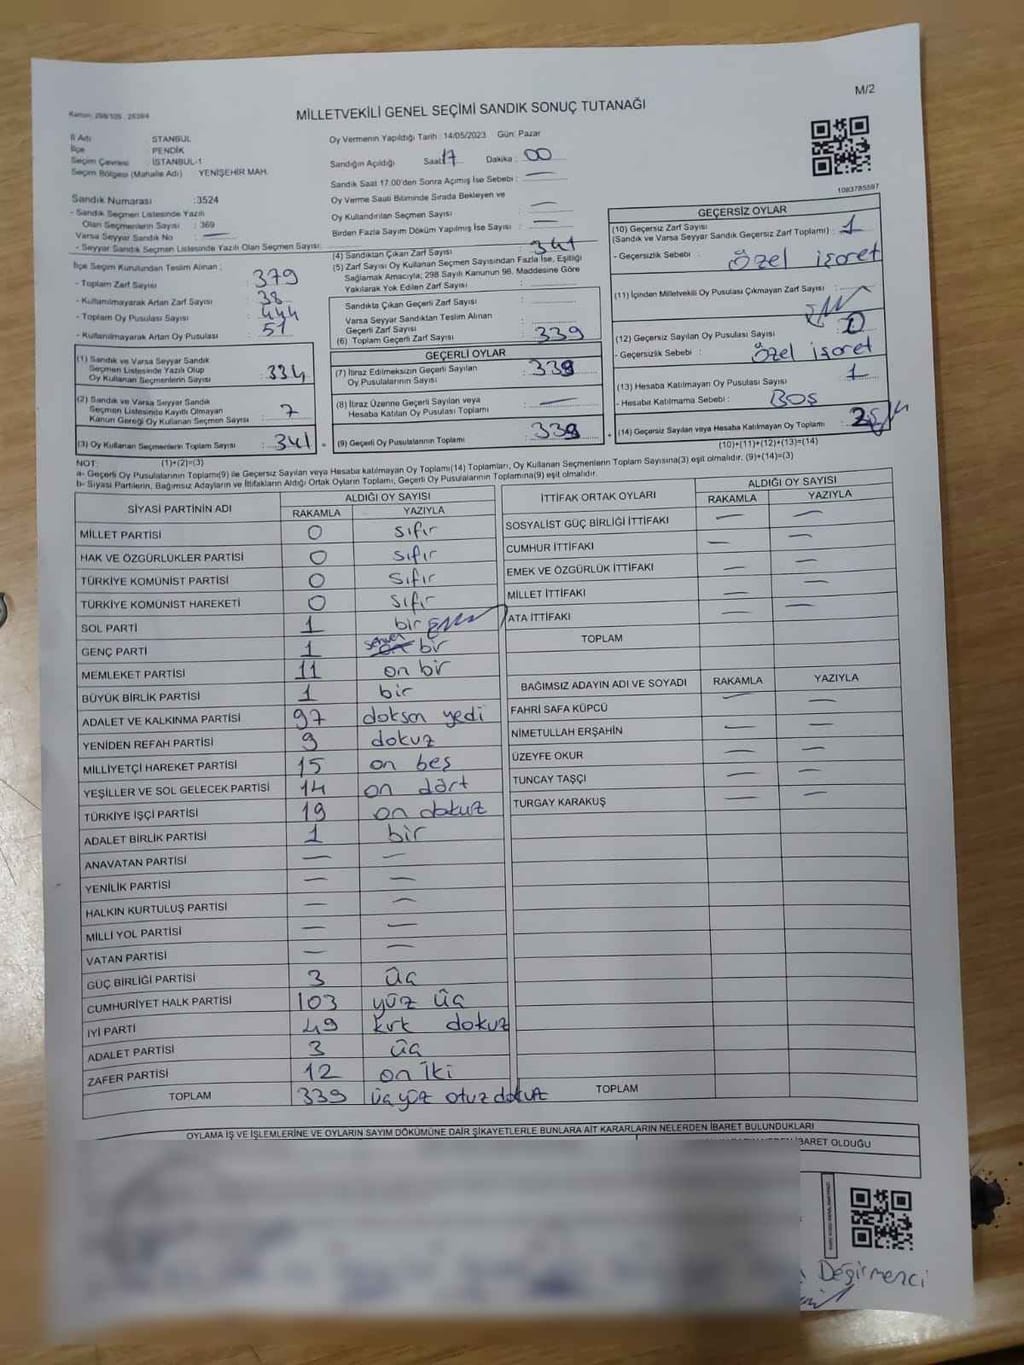 M/2
MİLLETVEKİLİ GENEL SEÇİMİ SANDIK SONUÇ TUTANAĞI
İl Adı : İSTANBUL
İlçe PENDİK
Seçim Çevresi İSTANBUL-1
Seçim Bölgesi (Mahalle Adı) YENİŞEHİR MAH.
Oy Vermenin Yapıldığı Tarih : 14/05/2023 Gün: Pazar
Sandığın Açıldığı Saat: 17 Dakika : 00
Sandık Saat 17:00'den Sonra Açımış İse Sebebi : —
Oy Verme Saati Bitiminde Sırada Bekleyen ve
Oy Kullandırılan Seçmen Sayısı —
Birden Fazla Sayım Döküm Yapılmış İse Sayısı : —
1093785597
Sandık Numarası : 3524
- Sandık Seçmen Listesinde Yazılı
Olan Seçmenlerin Sayısı : 369
Varsa Seyyar Sandık No —
- Seyyar Sandık Seçmen Listesinde Yazılı Olan Seçmen Sayısı:
İlçe Seçim Kurulundan Teslim Alınan :
- Toplam Zarf Sayısı : 379
- Kullanılmayarak Artan Zarf Sayısı : 38
- Toplam Oy Pusulası Sayısı : 444
- Kullanılmayarak Artan Oy Pusulası : 51
(1) Sandık ve Varsa Seyyar Sandık
Seçmen Listesinde Yazılı Olup
Oy Kullanan Seçmenlerin Sayısı : 334
(2) Sandık ve Varsa Seyyar Sandık
Seçmen Listesinde Kayıtlı Olmayan
Kanun Gereği Oy Kullanan Seçmen Sayısı : 7
(3) Oy Kullanan Seçmenlerin Toplam Sayısı : 341
(1)+(2)=(3)
(4) Sandıktan Çıkan Zarf Sayısı : 341
(5) Zarf Sayısı Oy Kullanan Seçmen Sayısından Fazla İse, Eşitliği
Sağlamak Amacıyla; 298 Sayılı Kanunun 98. Maddesine Göre
Yakılarak Yok Edilen Zarf Sayısı :
Sandıkta Çıkan Geçerli Zarf Sayısı :
Varsa Seyyar Sandıktan Teslim Alınan
Geçerli Zarf Sayısı :
(6) Toplam Geçerli Zarf Sayısı : 339
GEÇERLİ OYLAR
(7) İtiraz Edilmeksizin Geçerli Sayılan
Oy Pusulalarının Sayısı : 339
(8) İtiraz Üzerine Geçerli Sayılan veya
Hesaba Katılan Oy Pusulası Toplamı : —
(9) Geçerli Oy Pusulalarının Toplamı : 339
GEÇERSİZ OYLAR
(10) Geçersiz Zarf Sayısı : 1
(Sandık ve Varsa Seyyar Sandık Geçersiz Zarf Toplamı)
- Geçersizlik Sebebi : Özel işaret
(11) İçinden Milletvekili Oy Pusulası Çıkmayan Zarf Sayısı :
(12) Geçersiz Sayılan Oy Pusulası Sayısı :
- Geçersizlik Sebebi : Özel işaret
(13) Hesaba Katılmayan Oy Pusulası Sayısı : 1
- Hesaba Katılmama Sebebi : Boş
(14) Geçersiz Sayılan veya Hesaba Katılmayan Oy Toplamı : 2
(10)+(11)+(12)+(13)=(14)
NOT:
a- Geçerli Oy Pusulalarının Toplamı(9) ile Geçersiz Sayılan veya Hesaba katılmayan Oy Toplamı(14) Toplamları, Oy Kullanan Seçmenlerin Toplam Sayısına(3) eşit olmalıdır. (9)+(14)=(3)
b- Siyasi Partilerin, Bağımsız Adayların ve İttifakların Aldığı Ortak Oyların Toplamı, Geçerli Oy Pusulalarının Toplamına(9) eşit olmalıdır.
SİYASİ PARTİNİN ADI
ALDIĞI OY SAYISI
RAKAMLA YAZIYLA
MİLLET PARTİSİ 0 sıfır
HAK VE ÖZGÜRLÜKLER PARTİSİ 0 sıfır
TÜRKİYE KOMÜNİST PARTİSİ 0 sıfır
TÜRKİYE KOMÜNİST HAREKETİ 0 sıfır
SOL PARTİ 1 bir
GENÇ PARTİ 1 bir
MEMLEKET PARTİSİ 11 on bir
BÜYÜK BİRLİK PARTİSİ 1 bir
ADALET VE KALKINMA PARTİSİ 97 doksan yedi
YENİDEN REFAH PARTİSİ 9 dokuz
MİLLİYETÇİ HAREKET PARTİSİ 15 on beş
YEŞİLLER VE SOL GELECEK PARTİSİ 14 on dört
TÜRKİYE İŞÇİ PARTİSİ 19 on dokuz
ADALET BİRLİK PARTİSİ 1 bir
ANAVATAN PARTİSİ — —
YENİLİK PARTİSİ — —
HALKIN KURTULUŞ PARTİSİ — —
MİLLİ YOL PARTİSİ — —
VATAN PARTİSİ — —
GÜÇ BİRLİĞİ PARTİSİ 3 üç
CUMHURİYET HALK PARTİSİ 103 yüz üç
İYİ PARTİ 49 kırk dokuz
ADALET PARTİSİ 3 üç
ZAFER PARTİSİ 12 on iki
TOPLAM 339 üçyüz otuzdokuz
İTTİFAK ORTAK OYLARI
ALDIĞI OY SAYISI
RAKAMLA YAZIYLA
SOSYALİST GÜÇ BİRLİĞİ İTTİFAKI — —
CUMHUR İTTİFAKI — —
EMEK VE ÖZGÜRLÜK İTTİFAKI — —
MİLLET İTTİFAKI — —
ATA İTTİFAKI — —
TOPLAM
BAĞIMSIZ ADAYIN ADI VE SOYADI RAKAMLA YAZIYLA
FAHRİ SAFA KÜPCÜ — —
NİMETULLAH ERŞAHİN — —
ÜZEYFE OKUR — —
TUNCAY TAŞÇI — —
TURGAY KARAKUŞ — —
TOPLAM
OYLAMA İŞ VE İŞLEMLERİNE VE OYLARIN SAYIM DÖKÜMÜNE DAİR ŞİKAYETLERLE BUNLARA AİT KARARLARIN NELERDEN İBARET BULUNDUKLARI
İBARET OLDUĞU
Değirmenci